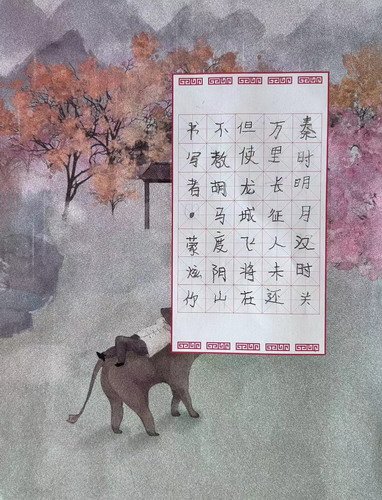 秦时明月汉时关
万里长征人未还
但使龙城飞将在
不教胡马度阴山
书写者•蒙泓你